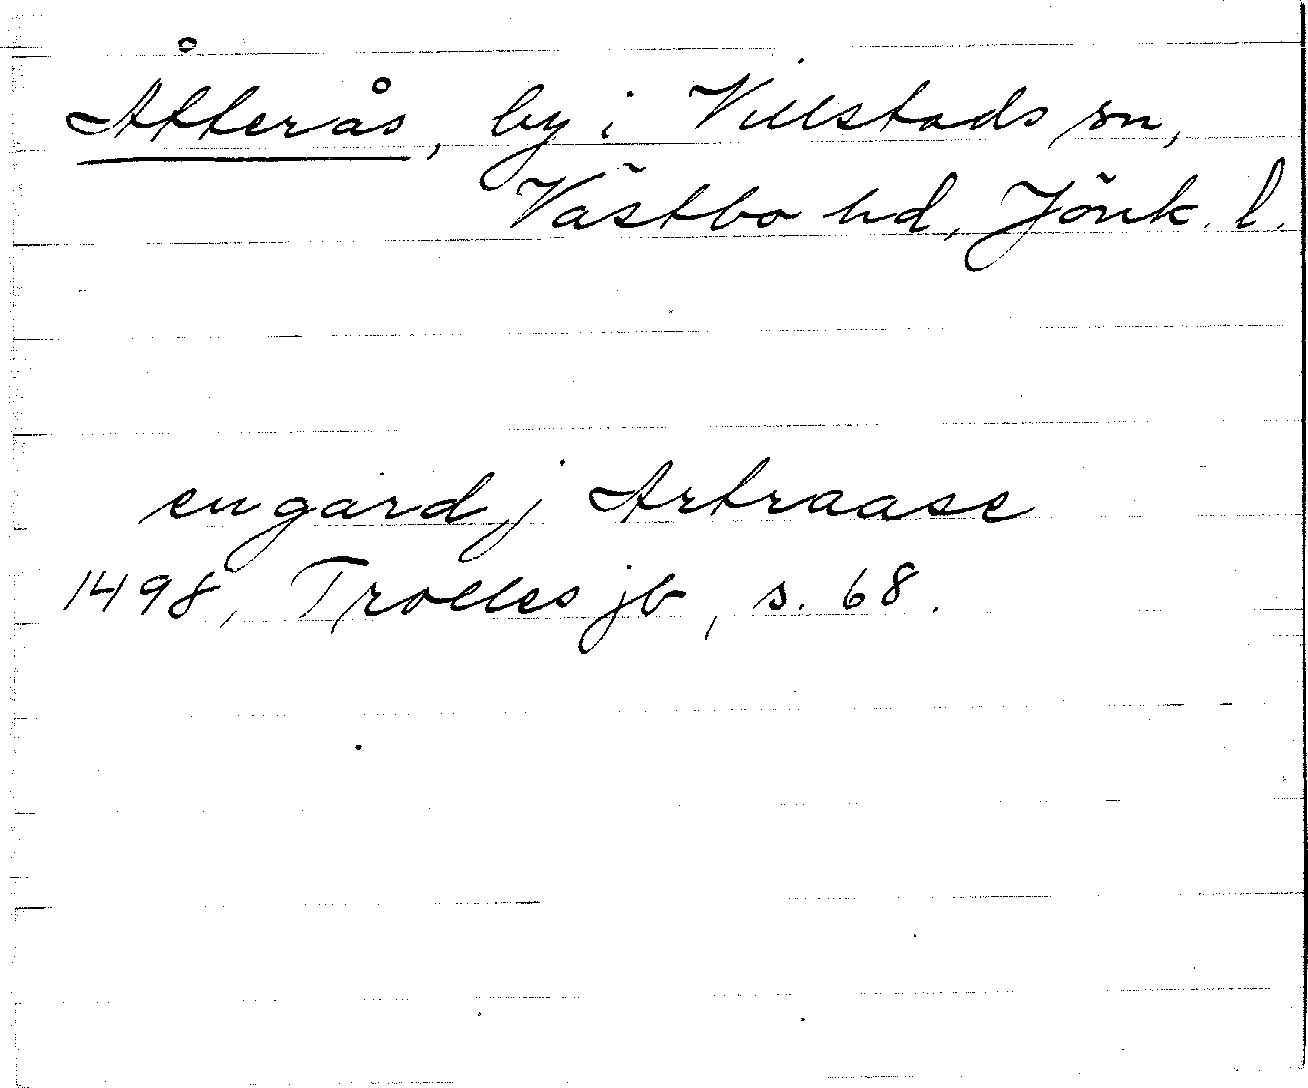 Åtterås, by i Villstads sn,
Västbo hd, Jönk. l.
en gard j Artraase
1498, Trolles jb, s. 68.